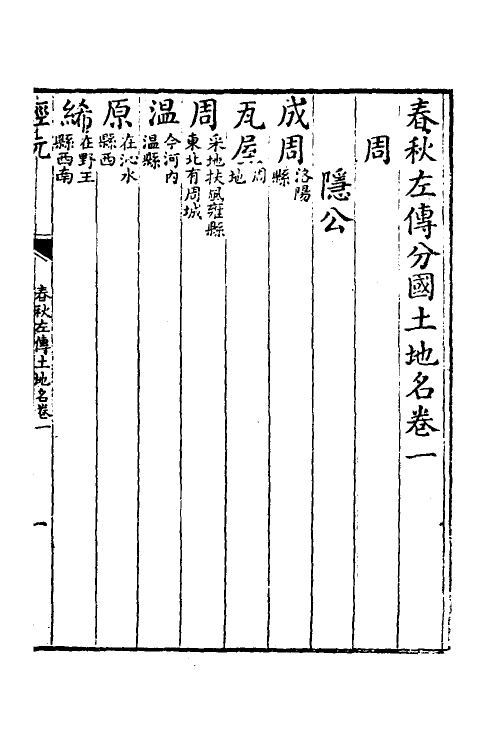 春秋左傳分國土地名卷一
周
隱公
成周洛陽縣
瓦屋周地
周采地扶風雍縣東北有周城
温今河内温縣
原在沁水縣西
絺在野王縣西南
春秋左傳土地名卷一
一